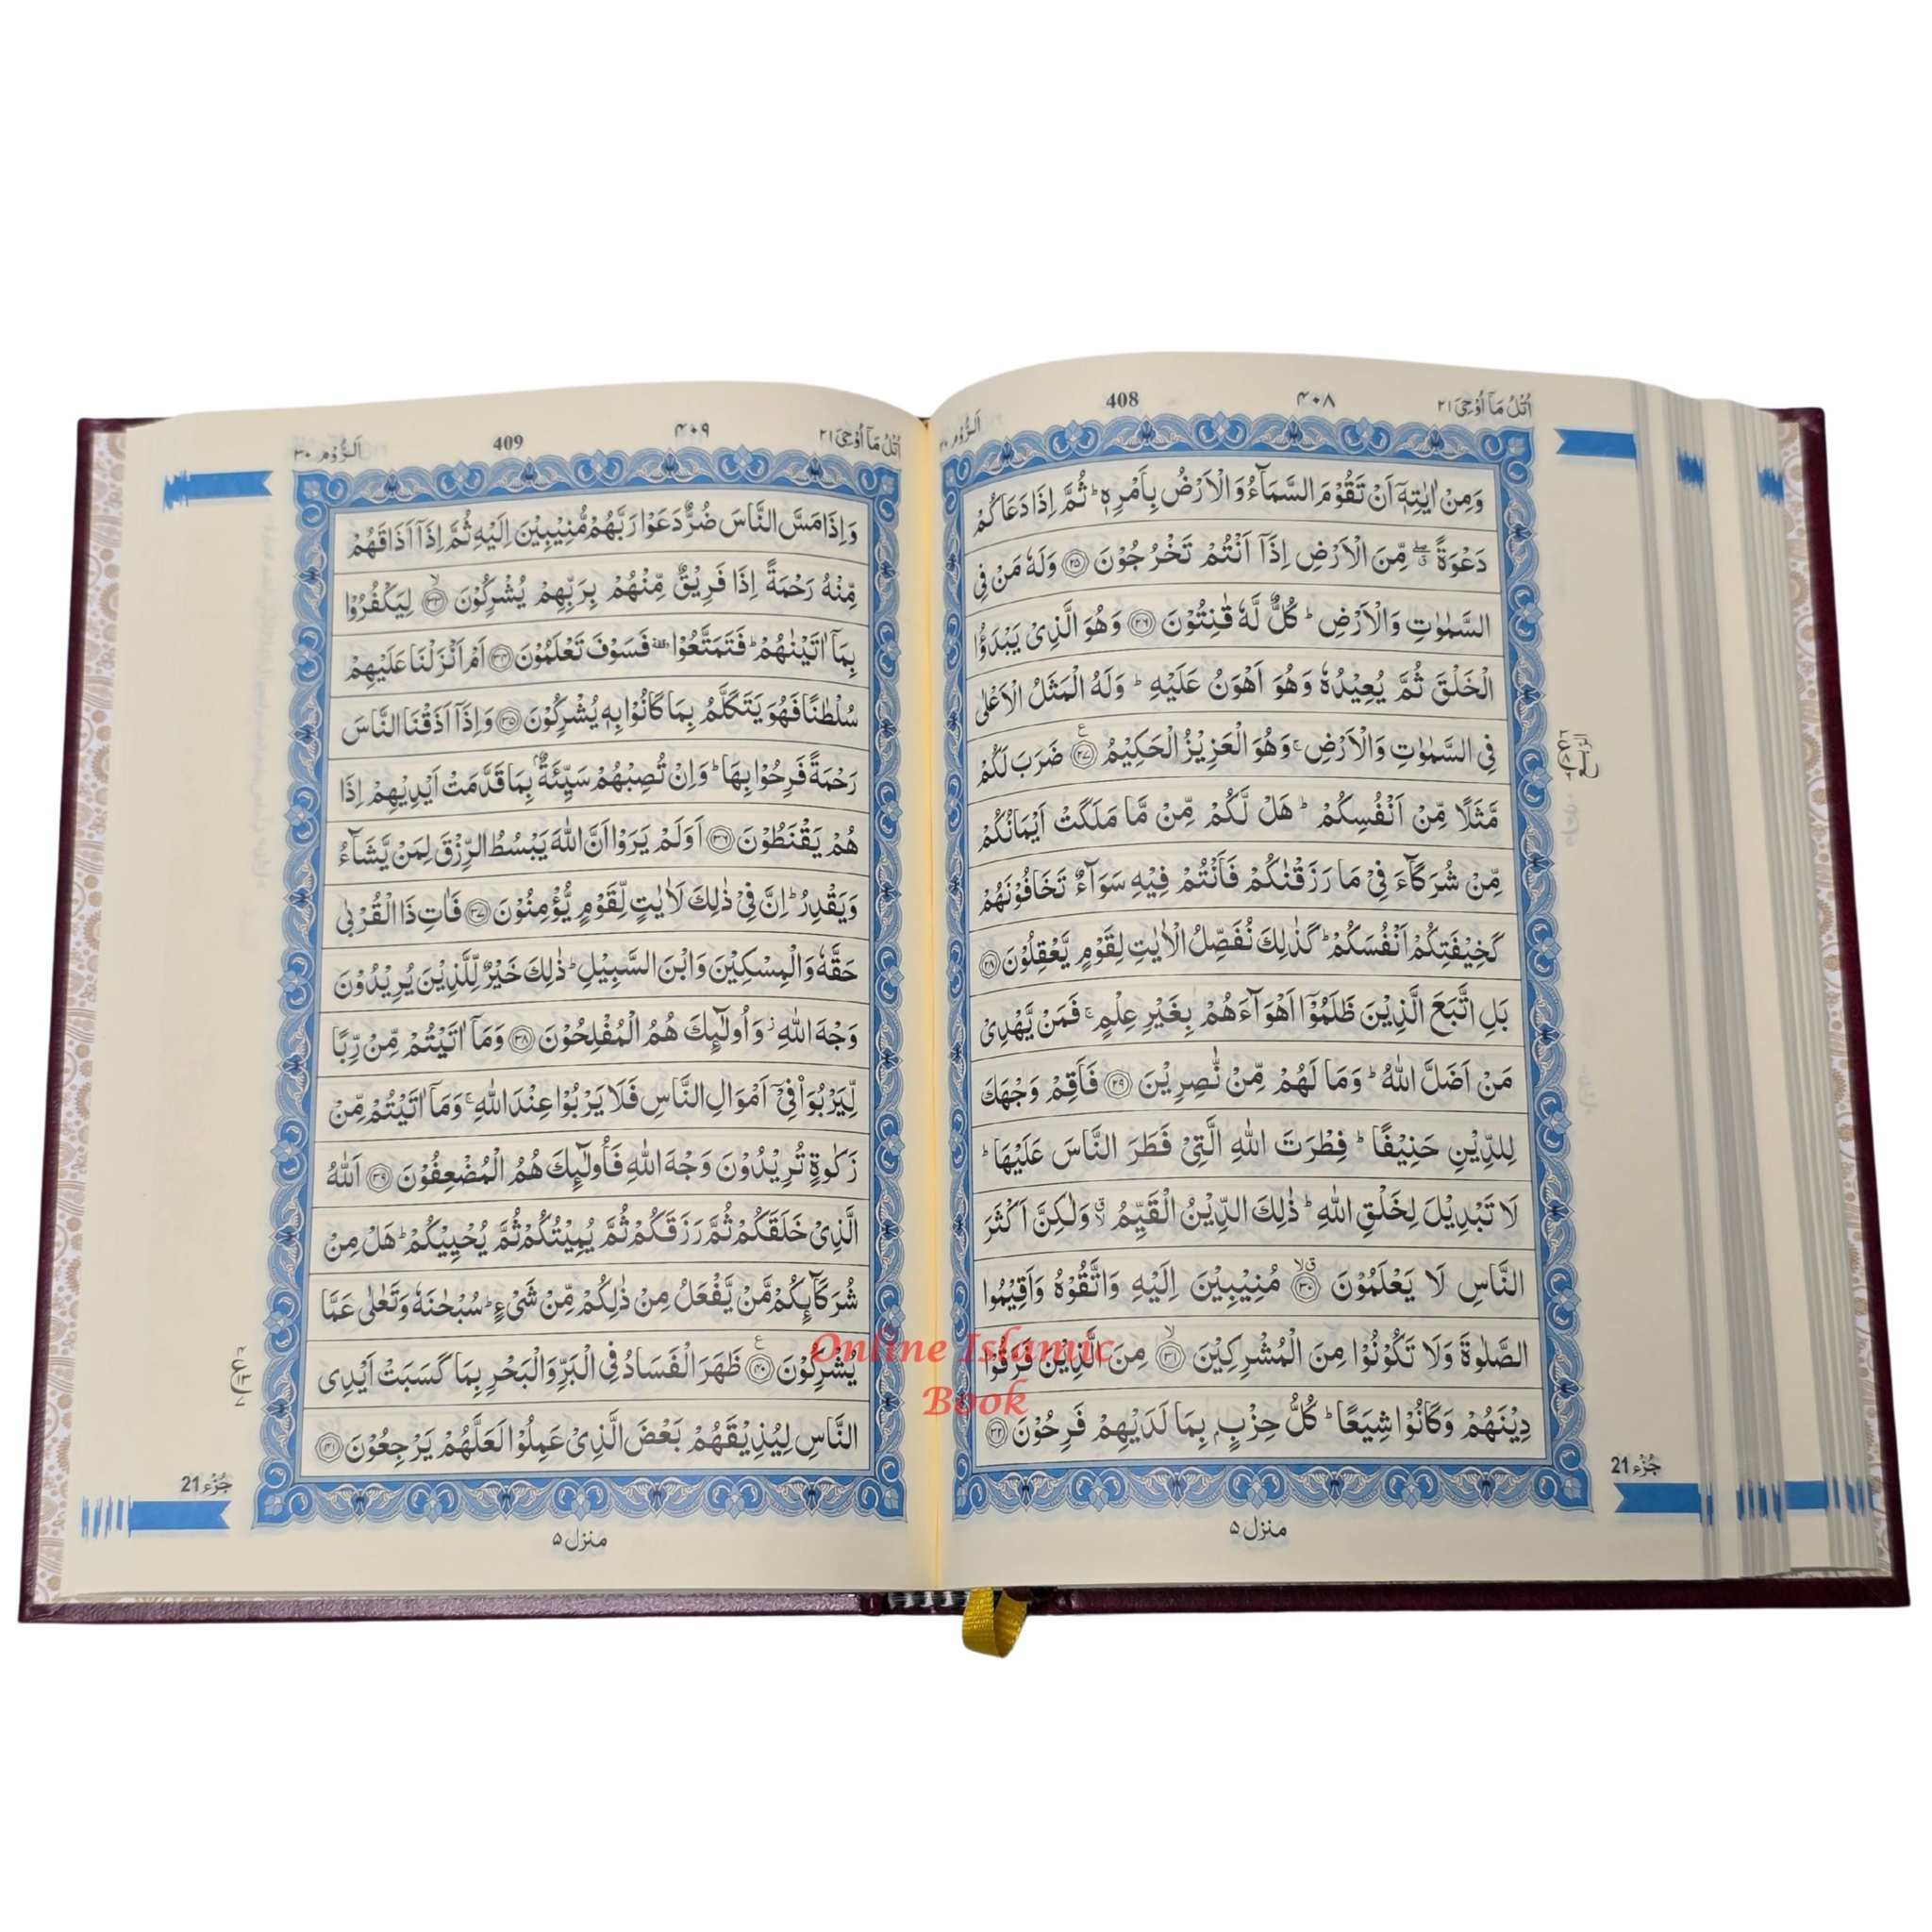 اُتْلُ مَاۤ اُوْحِىَ ٢١
۴۰۸
408
اَلرُّوْم ٣٠
وَمِنْ اٰيٰتِهٖۤ اَنْ تَقُوْمَ السَّمَآءُ وَالْاَرْضُ بِاَمْرِهٖ ؕ ثُمَّ اِذَا دَعَاكُمْ
دَعْوَةً ۖ مِّنَ الْاَرْضِ اِذَاۤ اَنْتُمْ تَخْرُجُوْنَ ﴿۲۵﴾ وَلَهٗ مَنْ فِى
السَّمٰوٰتِ وَالْاَرْضِ ؕ كُلٌّ لَّهٗ قٰنِتُوْنَ ﴿۲۶﴾ وَهُوَ الَّذِىْ يَبْدَؤُا
الْخَلْقَ ثُمَّ يُعِيْدُهٗ وَهُوَ اَهْوَنُ عَلَيْهِ ؕ وَلَهُ الْمَثَلُ الْاَعْلٰى
فِى السَّمٰوٰتِ وَالْاَرْضِ ۚ وَهُوَ الْعَزِيْزُ الْحَكِيْمُ ﴿۲۷﴾ ضَرَبَ لَكُمْ
مَّثَلًا مِّنْ اَنْفُسِكُمْ ؕ هَلْ لَّكُمْ مِّنْ مَّا مَلَكَتْ اَيْمَانُكُمْ
مِّنْ شُرَكَآءَ فِىْ مَا رَزَقْنٰكُمْ فَاَنْتُمْ فِيْهِ سَوَآءٌ تَخَافُوْنَهُمْ
كَخِيْفَتِكُمْ اَنْفُسَكُمْ ؕ كَذٰلِكَ نُفَصِّلُ الْاٰيٰتِ لِقَوْمٍ يَّعْقِلُوْنَ ﴿۲۸﴾
بَلِ اتَّبَعَ الَّذِيْنَ ظَلَمُوْۤا اَهْوَآءَهُمْ بِغَيْرِ عِلْمٍ ۚ فَمَنْ يَّهْدِىْ
مَنْ اَضَلَّ اللّٰهُ ؕ وَمَا لَهُمْ مِّنْ نّٰصِرِيْنَ ﴿۲۹﴾ فَاَقِمْ وَجْهَكَ
لِلدِّيْنِ حَنِيْفًا ؕ فِطْرَتَ اللّٰهِ الَّتِىْ فَطَرَ النَّاسَ عَلَيْهَا ؕ
لَا تَبْدِيْلَ لِخَلْقِ اللّٰهِ ؕ ذٰلِكَ الدِّيْنُ الْقَيِّمُ ۙ وَلٰكِنَّ اَكْثَرَ
النَّاسِ لَا يَعْلَمُوْنَ ﴿۳۰﴾ مُنِيْبِيْنَ اِلَيْهِ وَاتَّقُوْهُ وَاَقِيْمُوا
الصَّلٰوةَ وَلَا تَكُوْنُوْا مِنَ الْمُشْرِكِيْنَ ﴿۳۱﴾ مِنَ الَّذِيْنَ فَرَّقُوْا
دِيْنَهُمْ وَكَانُوْا شِيَعًا ؕ كُلُّ حِزْبٍۭ بِمَا لَدَيْهِمْ فَرِحُوْنَ ﴿۳۲﴾
جُزْء 21
منزل ۵
اُتْلُ مَاۤ اُوْحِىَ ٢١
۴۰۹
409
اَلرُّوْم ٣٠
وَاِذَا مَسَّ النَّاسَ ضُرٌّ دَعَوْا رَبَّهُمْ مُّنِيْبِيْنَ اِلَيْهِ ثُمَّ اِذَاۤ اَذَاقَهُمْ
مِّنْهُ رَحْمَةً اِذَا فَرِيْقٌ مِّنْهُمْ بِرَبِّهِمْ يُشْرِكُوْنَ ﴿۳۳﴾ لِيَكْفُرُوْا
بِمَاۤ اٰتَيْنٰهُمْ ؕ فَتَمَتَّعُوْا فَسَوْفَ تَعْلَمُوْنَ ﴿۳۴﴾ اَمْ اَنْزَلْنَا عَلَيْهِمْ
سُلْطٰنًا فَهُوَ يَتَكَلَّمُ بِمَا كَانُوْا بِهٖ يُشْرِكُوْنَ ﴿۳۵﴾ وَاِذَاۤ اَذَقْنَا النَّاسَ
رَحْمَةً فَرِحُوْا بِهَا ؕ وَاِنْ تُصِبْهُمْ سَيِّئَةٌۢ بِمَا قَدَّمَتْ اَيْدِيْهِمْ اِذَا
هُمْ يَقْنَطُوْنَ ﴿۳۶﴾ اَوَلَمْ يَرَوْا اَنَّ اللّٰهَ يَبْسُطُ الرِّزْقَ لِمَنْ يَّشَآءُ
وَيَقْدِرُ ؕ اِنَّ فِىْ ذٰلِكَ لَاٰيٰتٍ لِّقَوْمٍ يُّؤْمِنُوْنَ ﴿۳۷﴾ فَاٰتِ ذَا الْقُرْبٰى
حَقَّهٗ وَالْمِسْكِيْنَ وَابْنَ السَّبِيْلِ ؕ ذٰلِكَ خَيْرٌ لِّلَّذِيْنَ يُرِيْدُوْنَ
وَجْهَ اللّٰهِ ؗ وَاُولٰٓئِكَ هُمُ الْمُفْلِحُوْنَ ﴿۳۸﴾ وَمَاۤ اٰتَيْتُمْ مِّنْ رِّبًا
لِّيَرْبُوَا۟ فِىْۤ اَمْوَالِ النَّاسِ فَلَا يَرْبُوْا عِنْدَ اللّٰهِ ۚ وَمَاۤ اٰتَيْتُمْ مِّنْ
زَكٰوةٍ تُرِيْدُوْنَ وَجْهَ اللّٰهِ فَاُولٰٓئِكَ هُمُ الْمُضْعِفُوْنَ ﴿۳۹﴾ اَللّٰهُ
الَّذِىْ خَلَقَكُمْ ثُمَّ رَزَقَكُمْ ثُمَّ يُمِيْتُكُمْ ثُمَّ يُحْيِيْكُمْ ؕ هَلْ مِنْ
شُرَكَآئِكُمْ مَّنْ يَّفْعَلُ مِنْ ذٰلِكُمْ مِّنْ شَىْءٍ ؕ سُبْحٰنَهٗ وَتَعٰلٰى عَمَّا
يُشْرِكُوْنَ ﴿۴۰﴾ ظَهَرَ الْفَسَادُ فِى الْبَرِّ وَالْبَحْرِ بِمَا كَسَبَتْ اَيْدِى
النَّاسِ لِيُذِيْقَهُمْ بَعْضَ الَّذِىْ عَمِلُوْا لَعَلَّهُمْ يَرْجِعُوْنَ ﴿۴۱﴾
جُزْء 21
منزل ۵
Online Islamic
Book